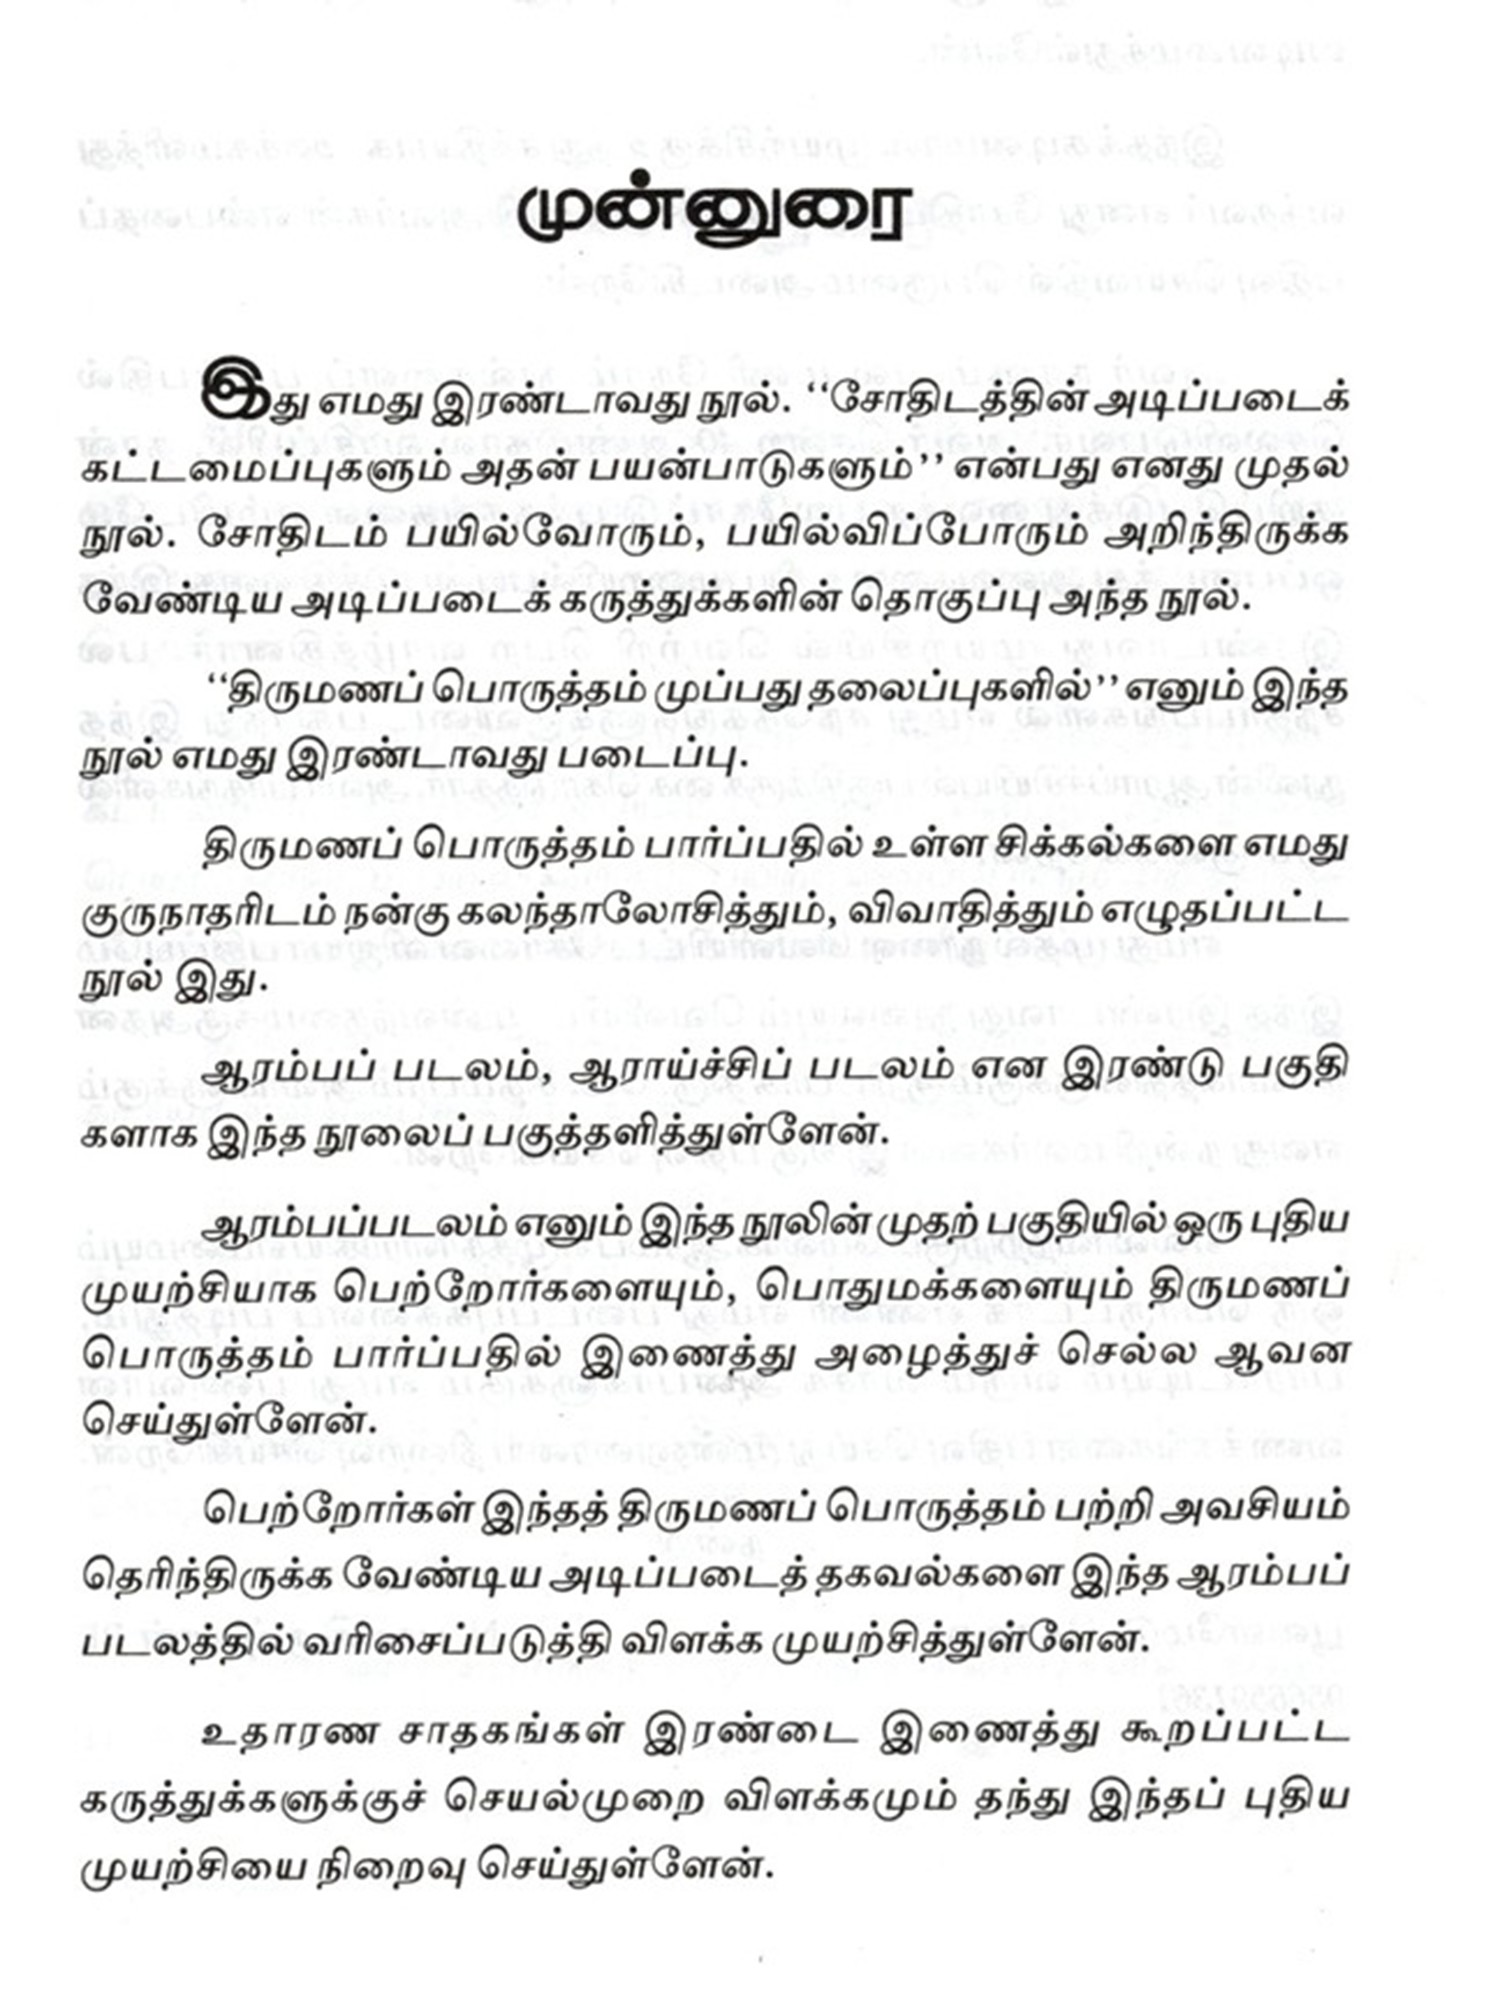 முன்னுரை
இது எமது இரண்டாவது நூல். ‘‘சோதிடத்தின் அடிப்படைக்
கட்டமைப்புகளும் அதன் பயன்பாடுகளும்’’ என்பது எனது முதல்
நூல். சோதிடம் பயில்வோரும், பயில்விப்போரும் அறிந்திருக்க
வேண்டிய அடிப்படைக் கருத்துக்களின் தொகுப்பு அந்த நூல்.
‘‘திருமணப் பொருத்தம் முப்பது தலைப்புகளில்’’ எனும் இந்த
நூல் எமது இரண்டாவது படைப்பு.
திருமணப் பொருத்தம் பார்ப்பதில் உள்ள சிக்கல்களை எமது
குருநாதரிடம் நன்கு கலந்தாலோசித்தும், விவாதித்தும் எழுதப்பட்ட
நூல் இது.
ஆரம்பப் படலம், ஆராய்ச்சிப் படலம் என இரண்டு பகுதி
களாக இந்த நூலைப் பகுத்தளித்துள்ளேன்.
ஆரம்பப்படலம் எனும் இந்த நூலின் முதற் பகுதியில் ஒரு புதிய
முயற்சியாக பெற்றோர்களையும், பொதுமக்களையும் திருமணப்
பொருத்தம் பார்ப்பதில் இணைத்து அழைத்துச் செல்ல ஆவன
செய்துள்ளேன்.
பெற்றோர்கள் இந்தத் திருமணப் பொருத்தம் பற்றி அவசியம்
தெரிந்திருக்க வேண்டிய அடிப்படைத் தகவல்களை இந்த ஆரம்பப்
படலத்தில் வரிசைப்படுத்தி விளக்க முயற்சித்துள்ளேன்.
உதாரண சாதகங்கள் இரண்டை இணைத்து கூறப்பட்ட
கருத்துக்களுக்குச் செயல்முறை விளக்கமும் தந்து இந்தப் புதிய
முயற்சியை நிறைவு செய்துள்ளேன்.